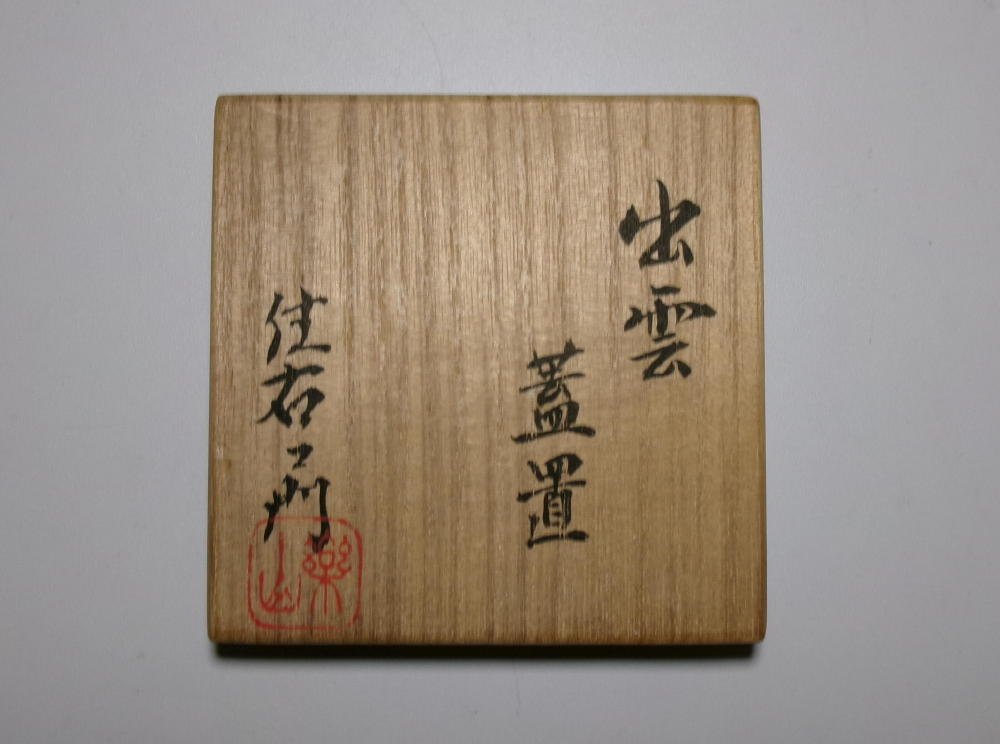 出雲
蓋置
住右衛門
樂山